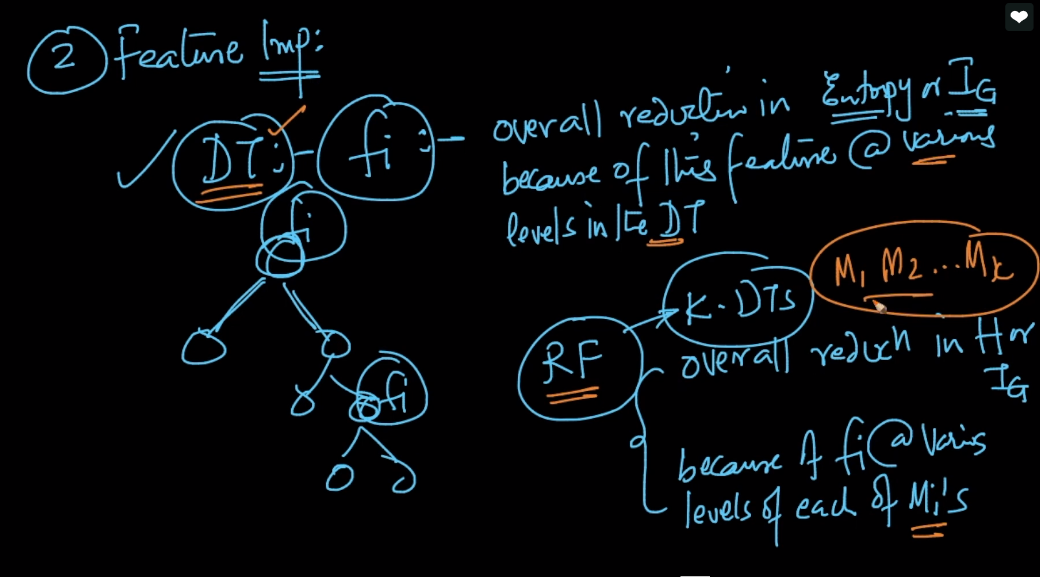 2 Feature Imp:
DT: - fi: - overall reduction in Entropy or IG
because of this feature @ various
levels in the DT
fi
fi
RF
K-DTs
M1 M2 ... Mk
overall reducn in H or
IG
because of fi @ various
levels of each of Mi's